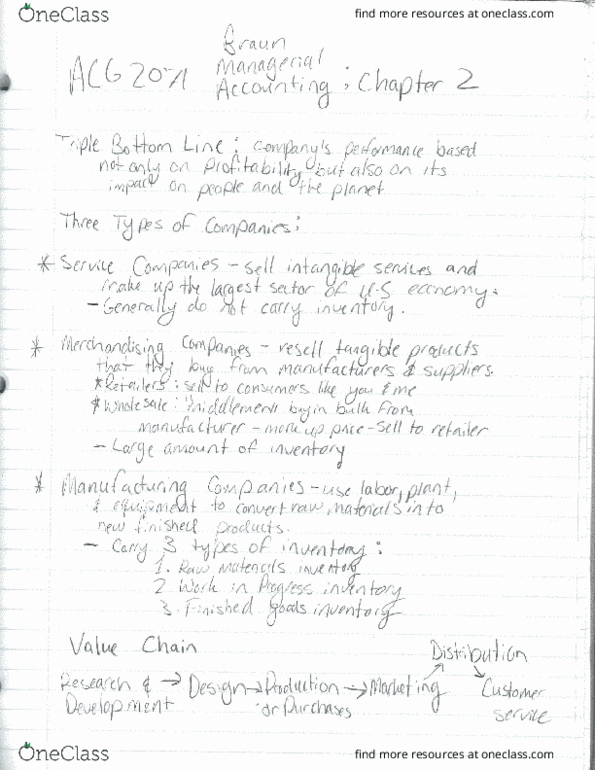 OneClass
find more resources at oneclass.com
Braun
ACG 2071 Managerial
Accounting : Chapter 2
Triple Bottom Line : Company's performance based
not only on Profitability but also on its
impact on people and the planet
Three Types of Companies :
* Service Companies - sell intangible services and
make up the largest sector of U.S economy.
- Generally do not carry inventory.
* Merchandising Companies - resell tangible products
that they buy from manufacturers & suppliers.
*Retailers : sell to consumers like you & me
*Wholesale : "middlemen" buy in bulk from
manufacturer - mark up price - sell to retailer
- Large amount of inventory
* Manufacturing Companies - use labor, plant,
& equipment to convert raw, materials into
new finished products.
- Carry 3 types of inventory :
1. Raw materials inventory
2. Work in Progress inventory
3. Finished goods inventory
Value Chain
Distribution
Research & → Design → Production → Marketing ↗ ↘ Customer
Development or Purchases service
OneClass
find more resources at oneclass.com